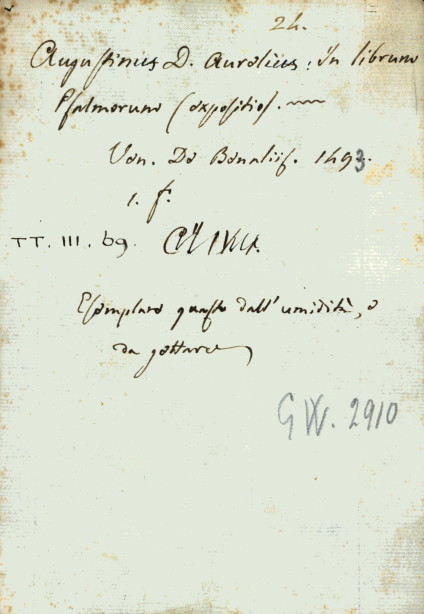 24.
Augustinus D. Aurelius: In librum
Psalmorum (expositio). —
Ven. De Bonaliis. 1493.
1. f.
TT. III. 69.
Esemplare guasto dall'umidità, e
da gettarsi
GW. 2910